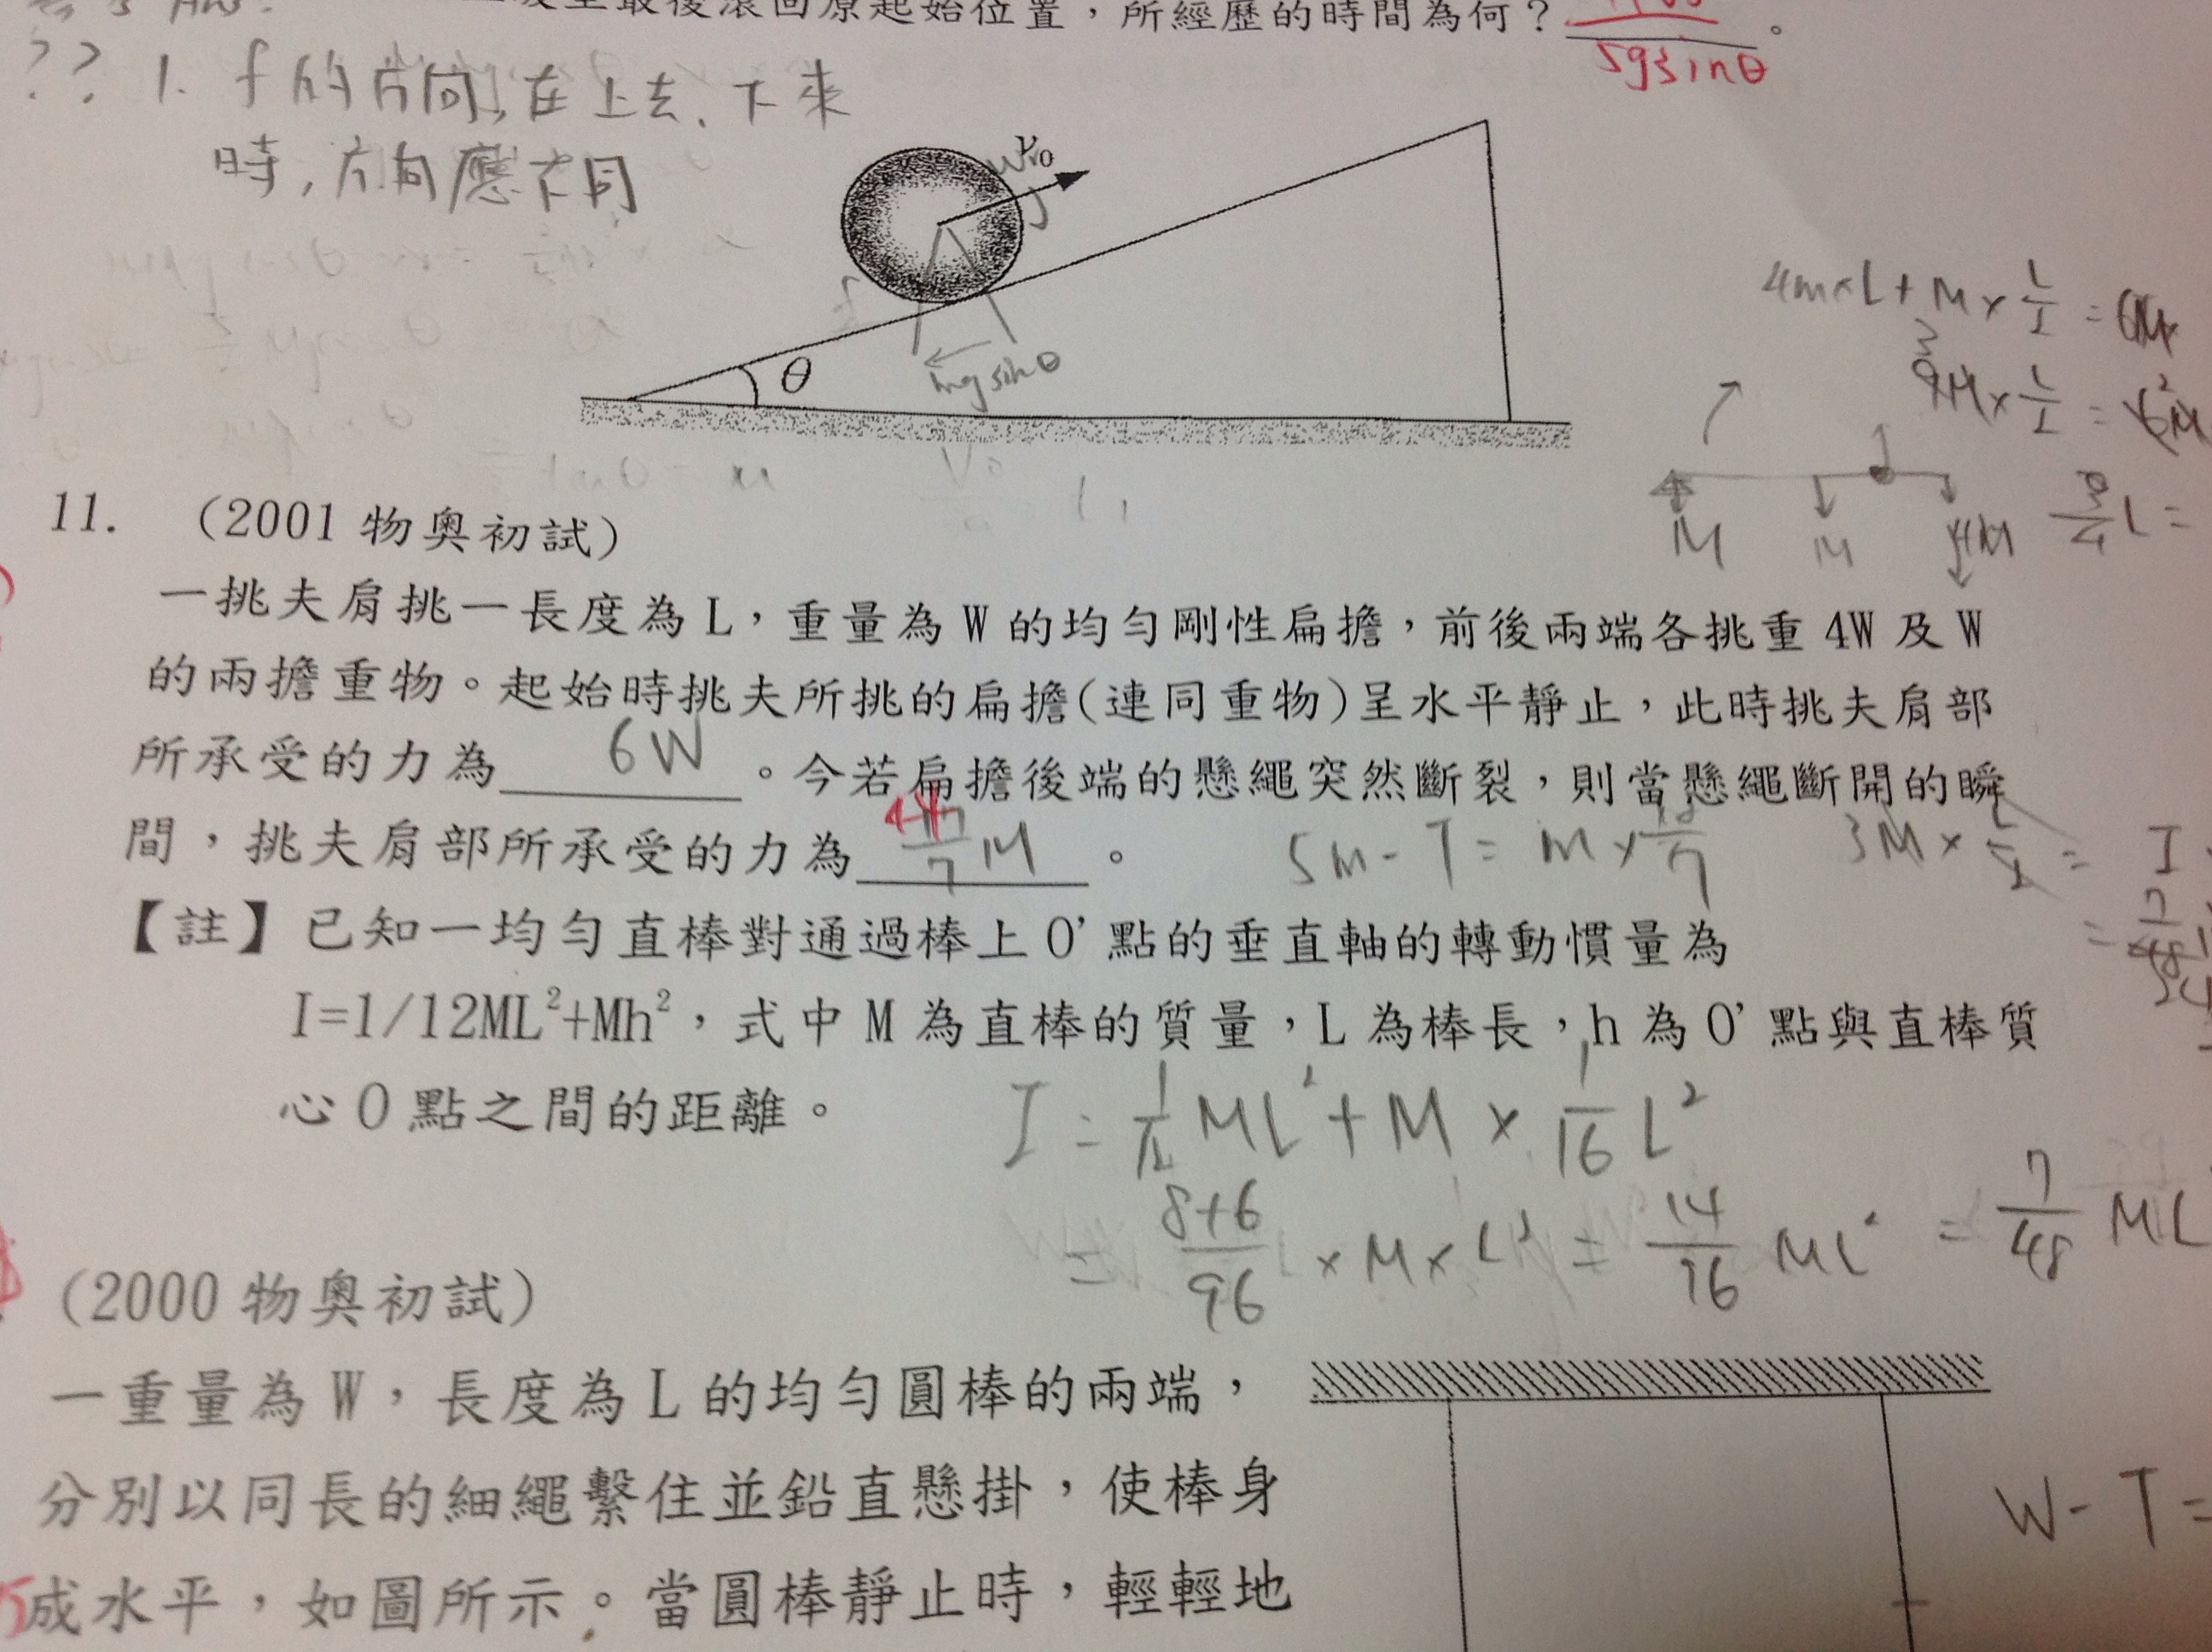 最後滾回原起始位置，所經歷的時間為何？
5gsinθ 。
?? 1. f的方向,在上去.下來
時,方向應不同
ν₀
θ
mgsinθ
f
4m×L+M×
M M 4M
11. （2001 物奧初試）
一挑夫肩挑一長度為 L，重量為 W 的均勻剛性扁擔，前後兩端各挑重 4W 及 W
的兩擔重物。起始時挑夫所挑的扁擔(連同重物)呈水平靜止，此時挑夫肩部
所承受的力為 6W 。今若扁擔後端的懸繩突然斷裂，則當懸繩斷開的瞬
間，挑夫肩部所承受的力為 M 。 5m-T=M× 3M×
【註】已知一均勻直棒對通過棒上 O’點的垂直軸的轉動慣量為
I=1/12ML²+Mh²，式中 M 為直棒的質量，L 為棒長，h 為 O’點與直棒質
心 O 點之間的距離。
I = 1/12 ML²+M×1/16 L²
= 8+6/96 ×M×L² = 14/96 ML² = 7/48 ML
（2000 物奧初試）
一重量為 W，長度為 L 的均勻圓棒的兩端，
分別以同長的細繩繫住並鉛直懸掛，使棒身
W-T=
成水平，如圖所示。當圓棒靜止時，輕輕地